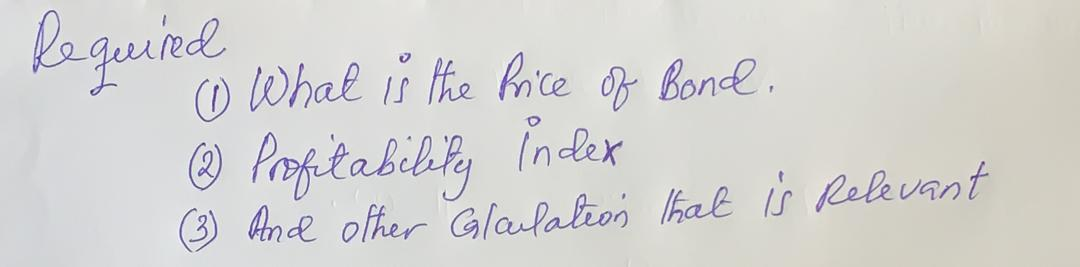 Required
(1) What is the Price of Bond.
(2) Profitability index
(3) And other Calculation that is Relevant